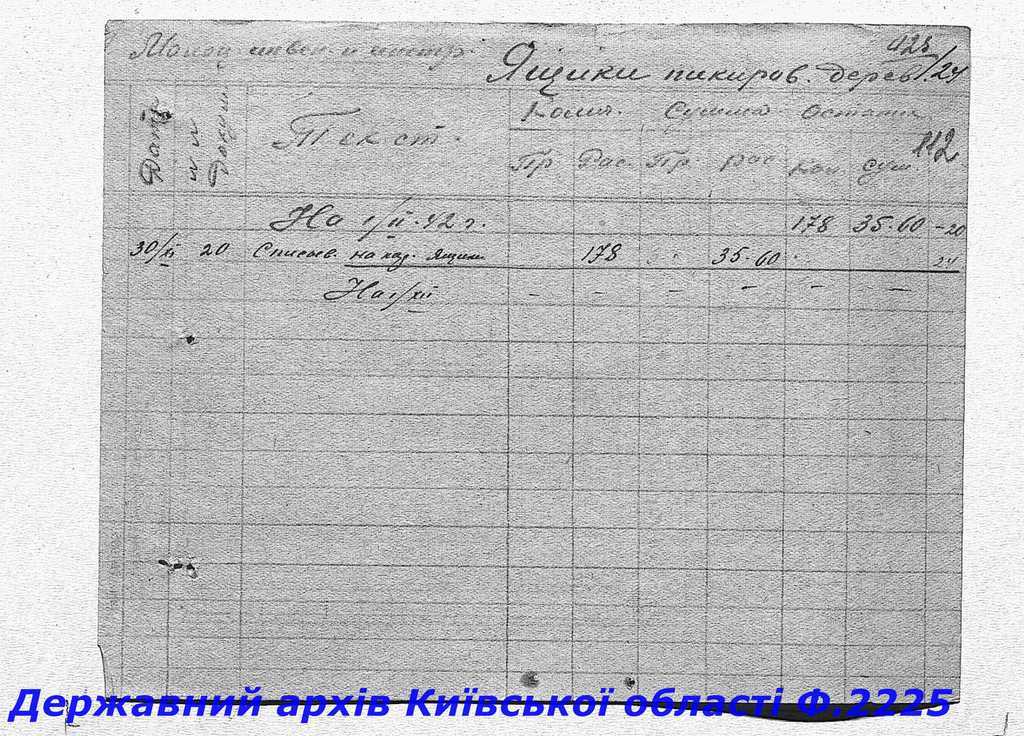 инвен. и инстр. 123
Ящики пикиров. дерев. 1/24
Дата № № Докум. Текст. Колич. Сумма Остаток 112
Пр. Рас. Пр. рас. Кол. Сум.
На 1/II-42 г. 178 35-60 -20
30/XI 20 Списыв. на кад. Ящики 178 35-60 24
На 1/XII – – – – – –
Державний архів Київської області Ф.2225